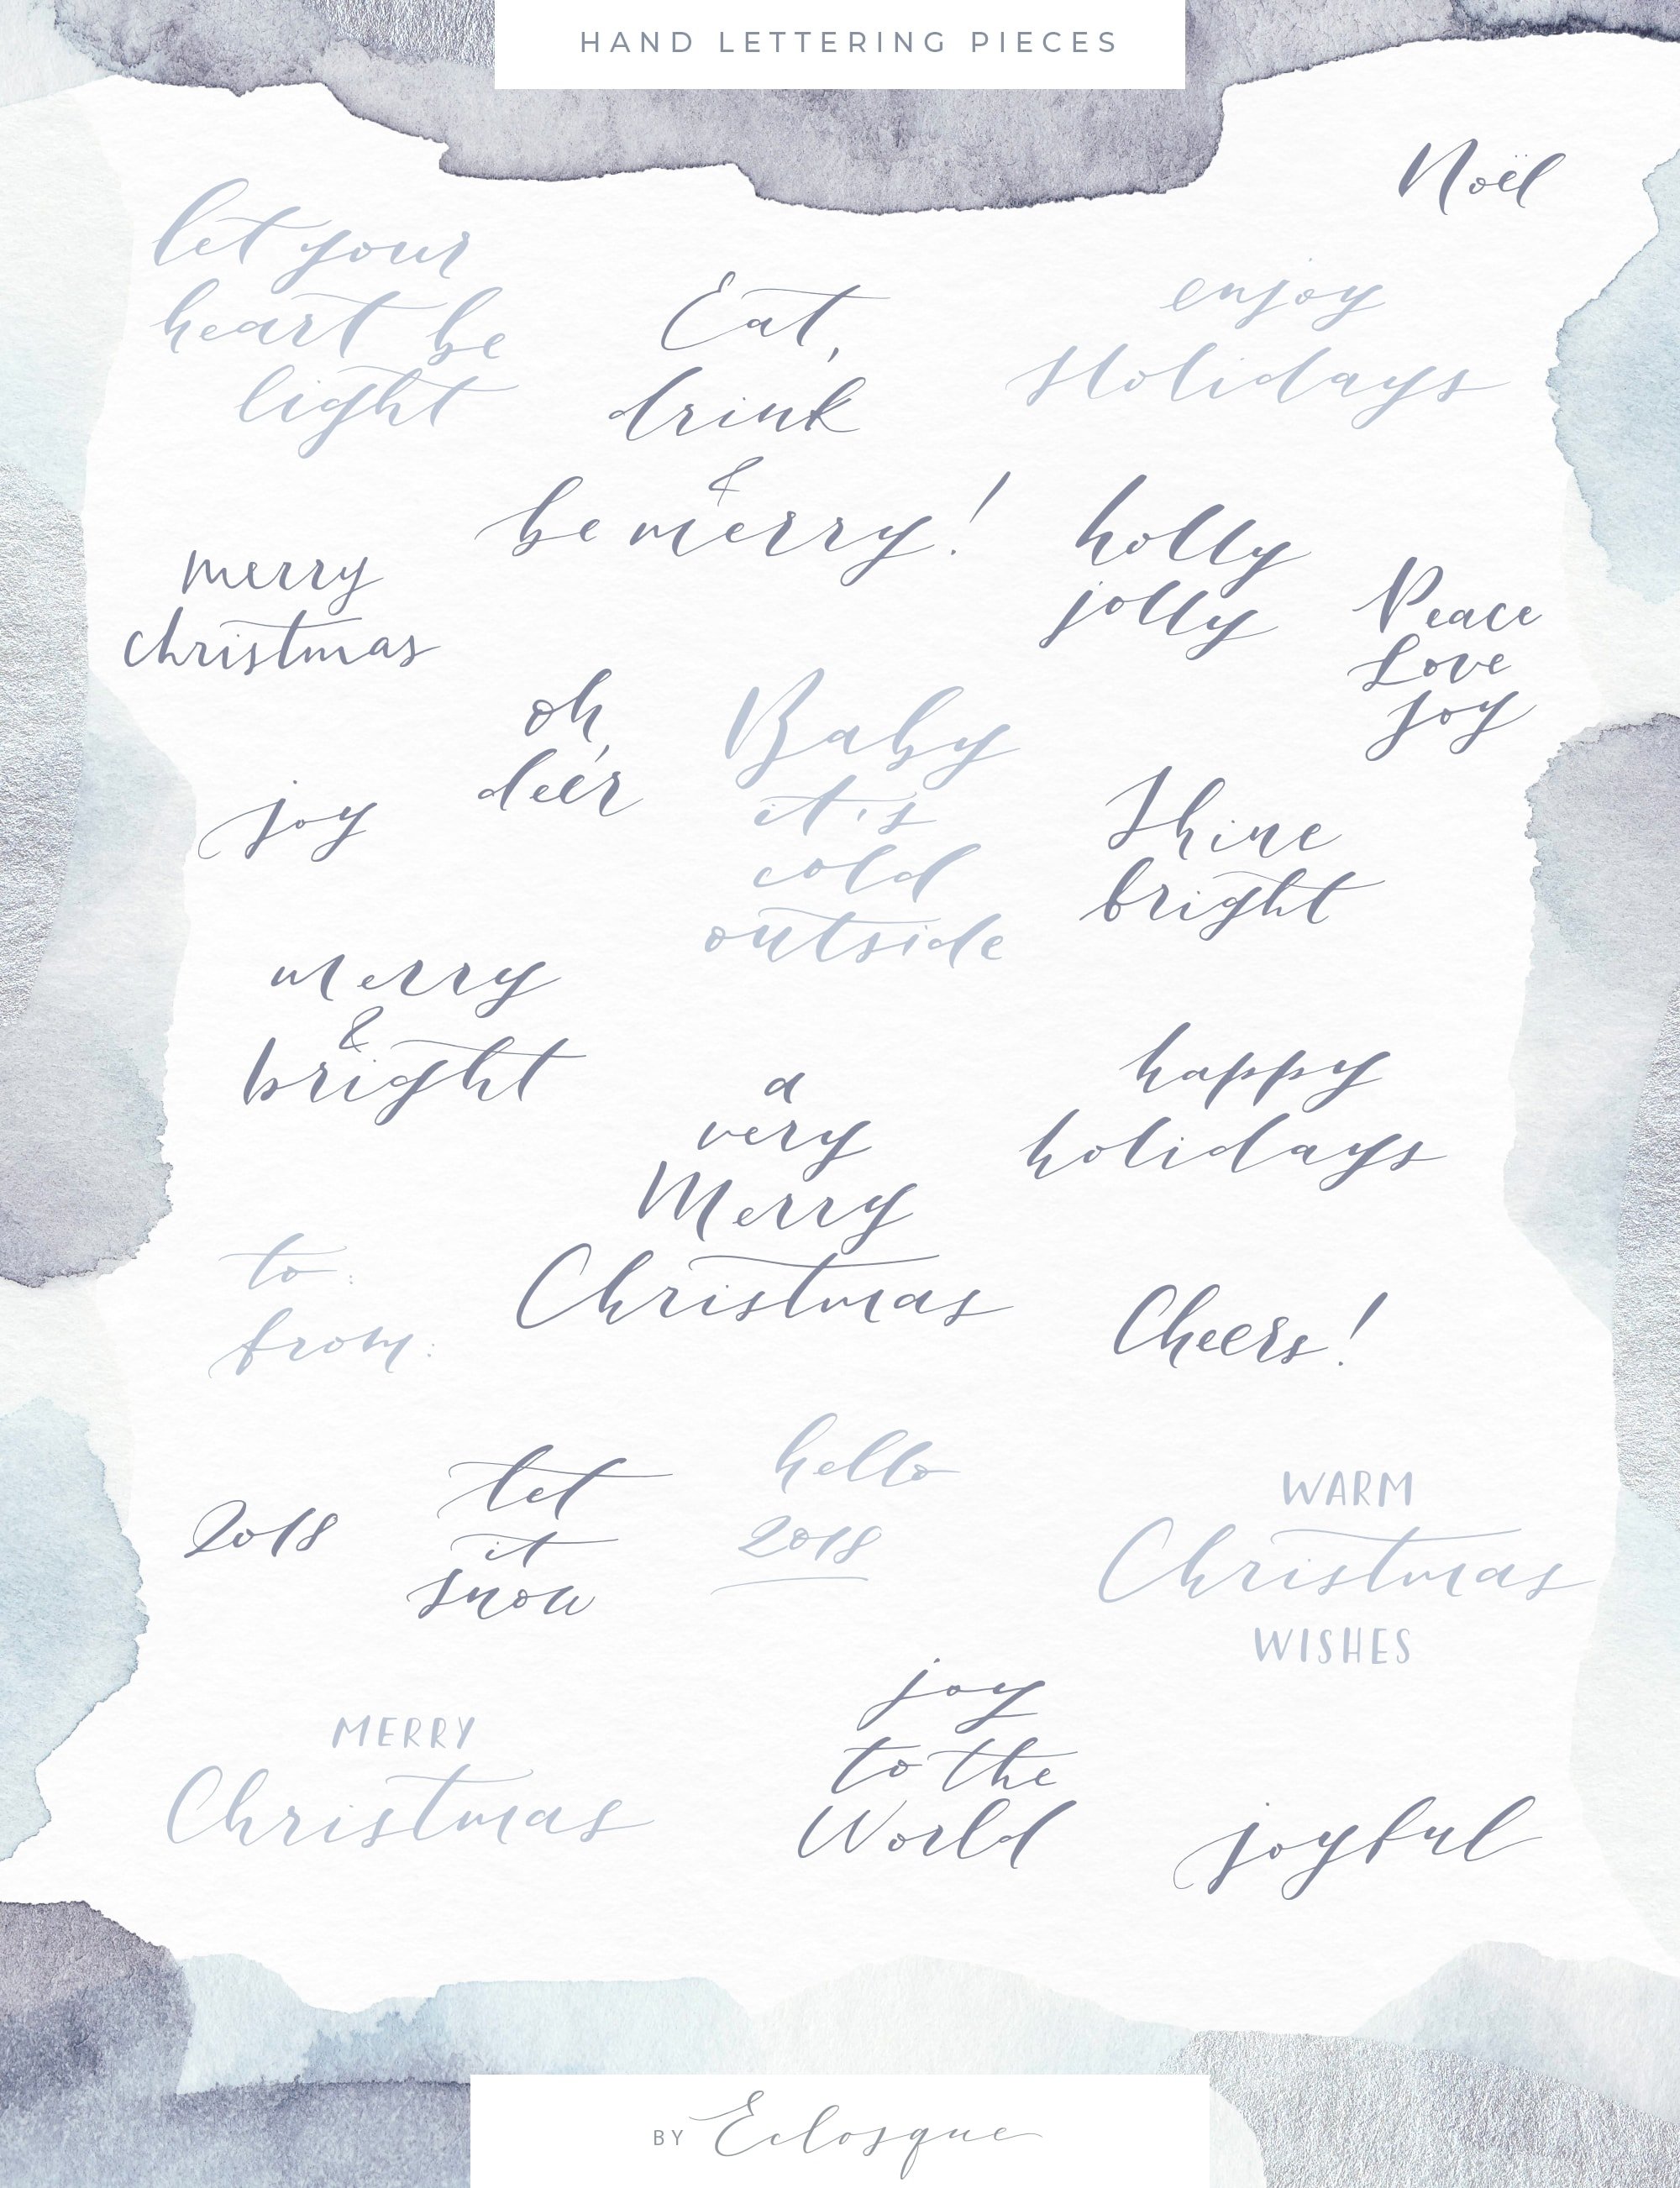 HAND LETTERING PIECES
Noël
let your
heart be
light
Eat,
drink
&
be merry!
enjoy
Holidays
merry
christmas
holly
jolly
Peace
Love
Joy
oh,
deer
Baby
it's
cold
outside
joy
Shine
bright
merry
&
bright
a
very
Merry
Christmas
happy
holidays
to:
from:
Cheers!
2018
let
it
snow
hello
2018
WARM
Christmas
WISHES
MERRY
Christmas
joy
to the
World
joyful
BY Eclosque